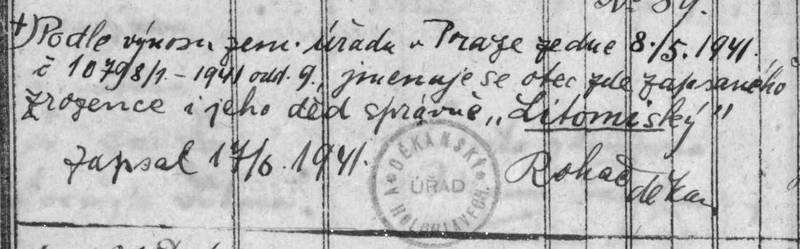 †) Podle výnosu zem. úřadu v Praze ze dne 8./5. 1941.,
č 10798/1. – 1941 odd. 9., jmenuje se otec zde zapsaného
zrozence i jeho děd správně „Litomiský"
zapsal 17/6. 1941.
DĚKANSKÝ ÚŘAD
děkan